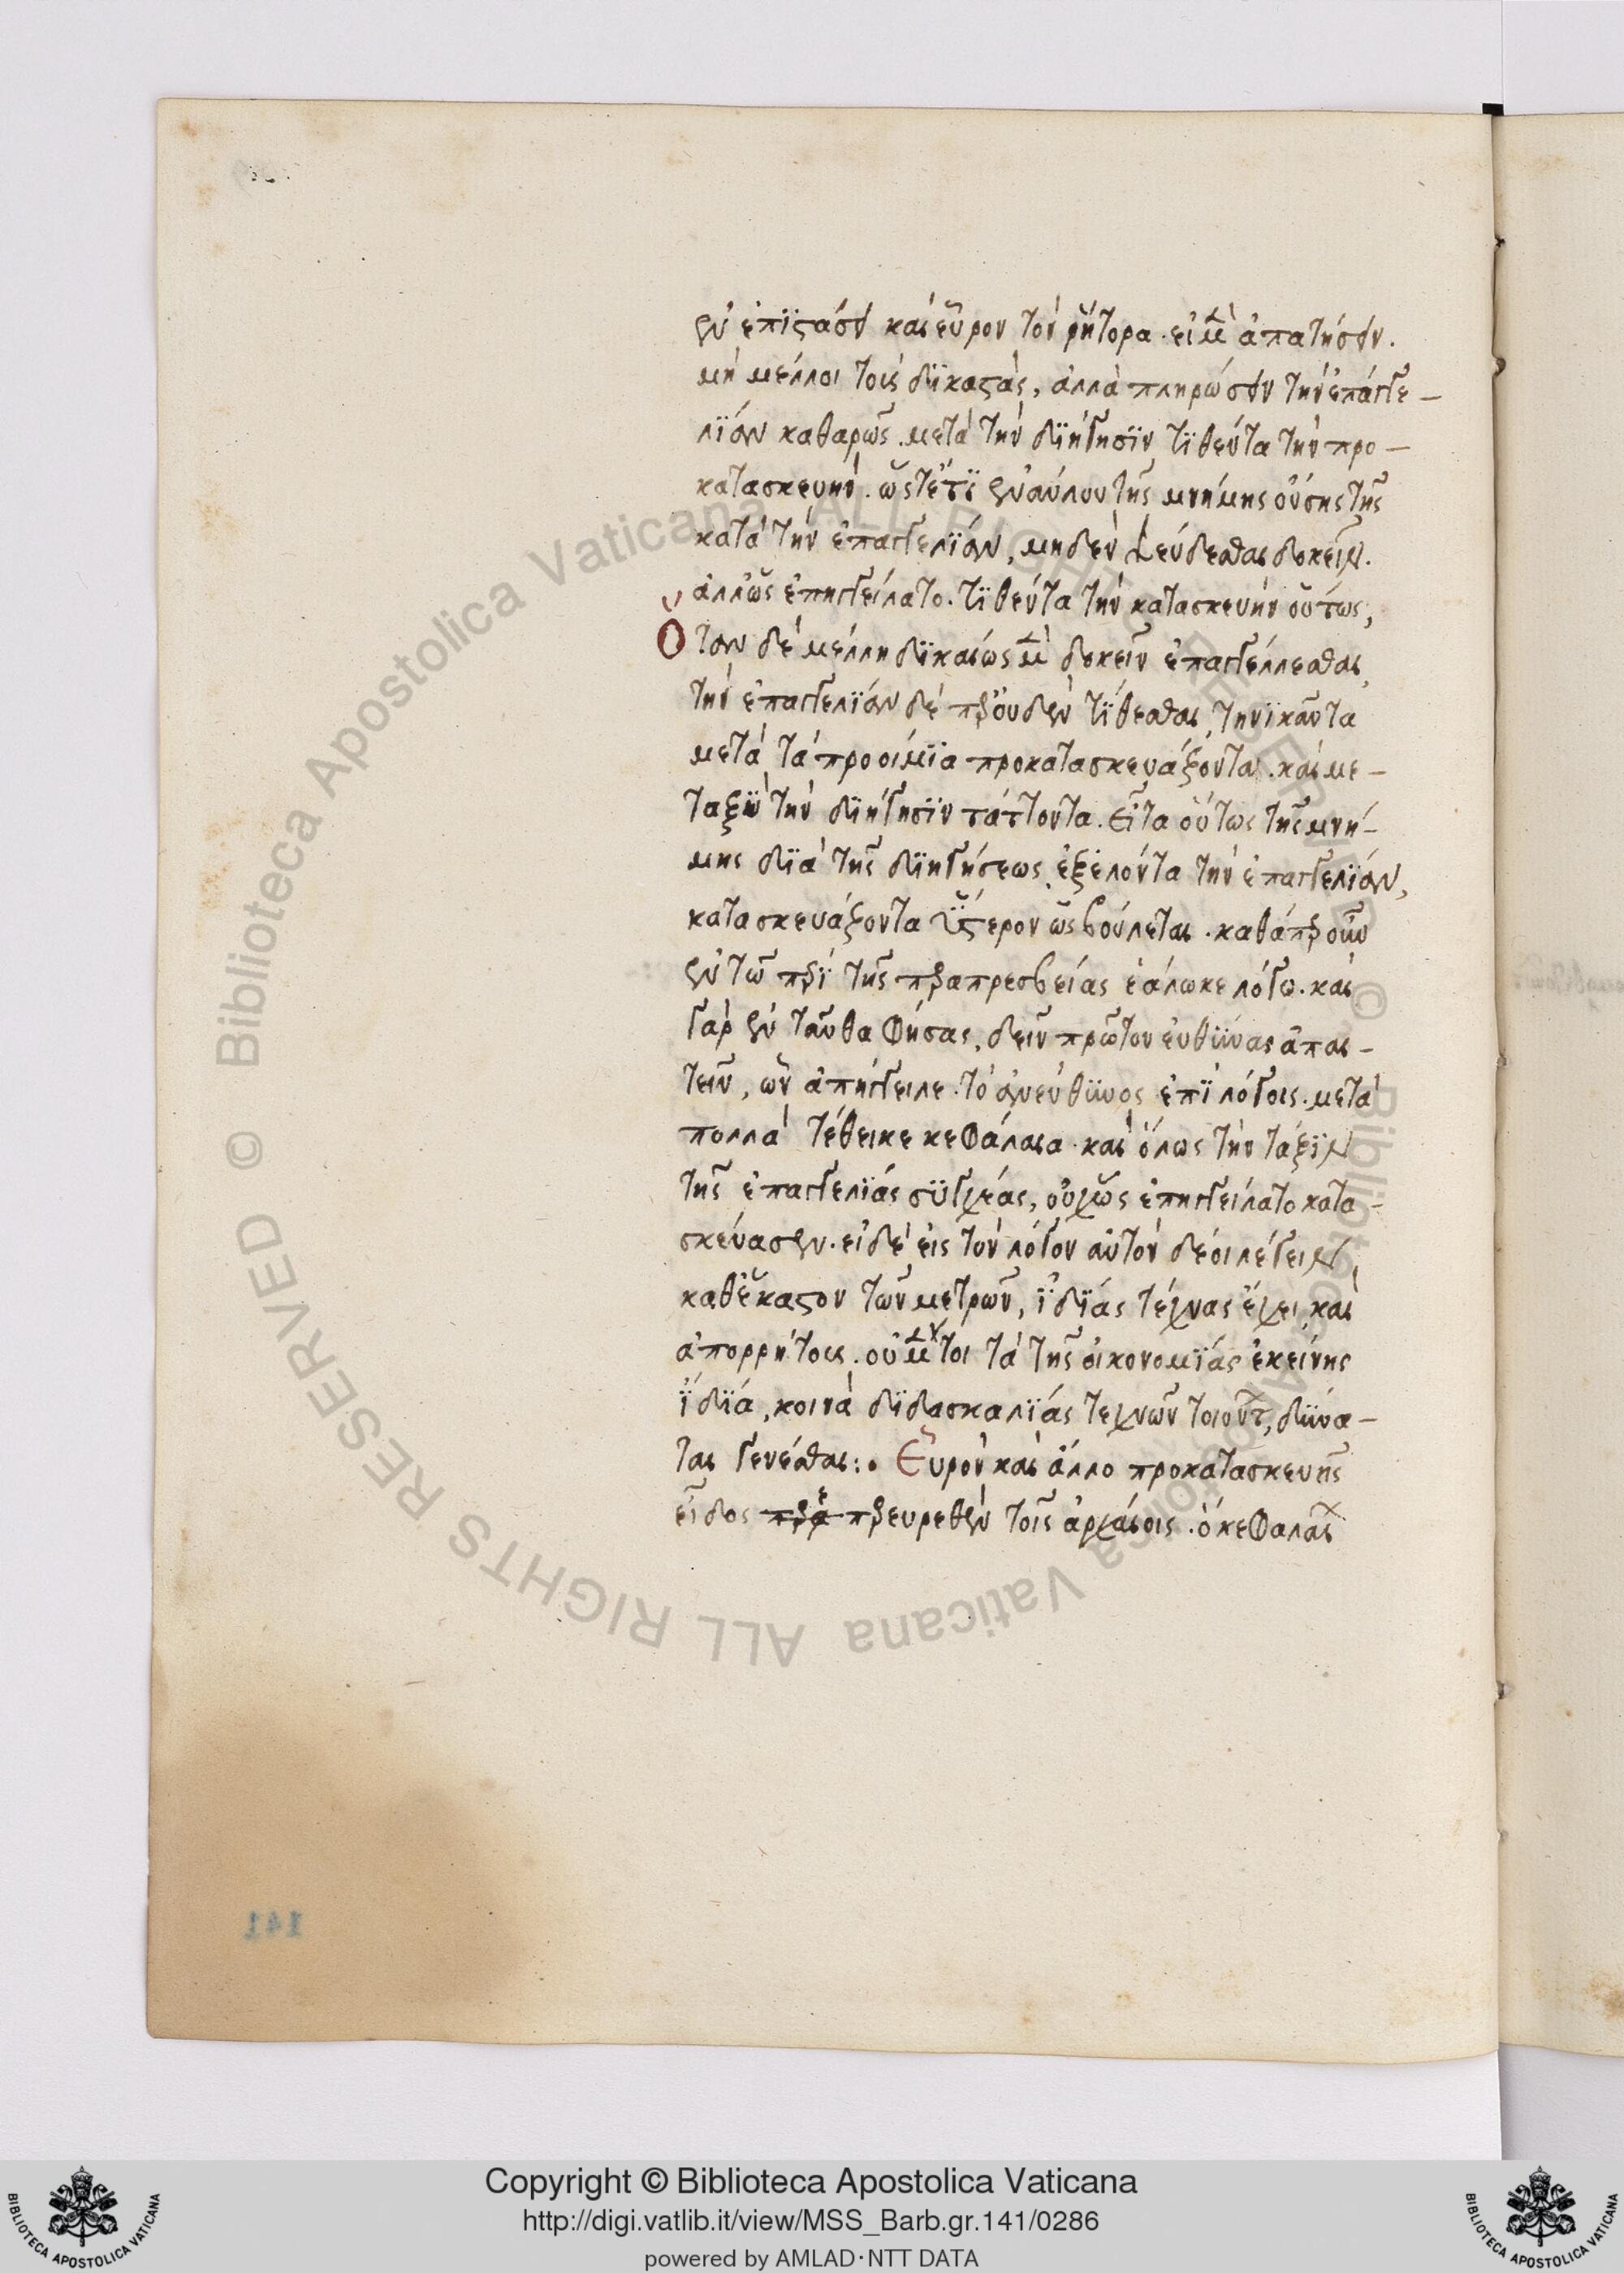 ἐν ἐπιστάσει καὶ εὗρον τὸν ῥήτορα. εἰ μὲν ἀπατήσειν.
μὴ μέλλοι τοὺς δικαστὰς, ἀλλὰ πληρώσειν τὴν ἐπαγγε-
λίαν καθαρῶς. μετὰ τὴν διήγησιν τιθέντα τὴν προ-
κατασκευὴν. ὥστ' ἔτι ἐναύλου τῆς μνήμης οὔσης τῆς
κατὰ τὴν ἐπαγγελίαν, μηδὲν ψεύδεσθαι δοκεῖν.
ἀλλ' ὡς ἐπηγγείλατο. τιθέντα τὴν κατασκευὴν οὕτως,
Ὅταν δὲ μέλλη δικαίως μὲν δοκεῖν ἐπαγγέλλεσθαι,
τὴν ἐπαγγελίαν δὲ παρ' οὐδὲν τίθεσθαι, τηνικαῦτα
μετὰ τὰ προοίμια προκατασκευάζοντα. καὶ με-
ταξὺ τὴν διήγησιν τάττοντα. εἶτα οὕτως τῆς μνή-
μης διὰ τῆς διηγήσεως ἐξελόντα τὴν ἐπαγγελίαν,
κατασκευάζοντα ὕστερον ὡς βούλεται. καθάπερ οὖν
ἐν τῶ περὶ τῆς παραπρεσβείας ἑάλωκε λόγω. καὶ
γὰρ ἐν ταῦθα φήσας, δεῖν πρῶτον εὐθύνας ἀπαι-
τεῖν, ὧν ἀπήγγειλε. τὸ ἀνεύθυνος ἐπὶ λόγοις. μετὰ
πολλὰ τέθεικε κεφάλαια. καὶ ὅλως τὴν τάξιν
τῆς ἐπαγγελίας συγχέας, οὐχ ὡς ἐπηγγείλατο κατα-
σκεύασεν. εἰ δὲ εἰς τὸν λόγον αὐτὸν δέοι λέγειν,
καθ' ἕκαστον τῶν μετρῶν, ἰδίας τέχνας ἔχει, καὶ
ἀπορρήτους. οὐ μέντοι τὰ τῆς οἰκονομίας ἐκείνης
ἴδια, κοινὰ διδασκαλίας τεχνῶν τοιούτ, δύνα-
ται γενέσθαι:. Εὗρον καὶ ἄλλο προκατασκευῆς
εἶδος παρευρεθὲν τοῖς ἀρχαίοις. ὃ κεφαλαι
141
Copyright © Biblioteca Apostolica Vaticana
http://digi.vatlib.it/view/MSS_Barb.gr.141/0286
powered by AMLAD·NTT DATA
© Biblioteca Apostolica Vaticana ALL RIGHTS RESERVED © Biblioteca Apostolica Vaticana ALL RIGHTS RESERVED
BIBLIOTECA APOSTOLICA VATICANA
BIBLIOTECA APOSTOLICA VATICANA